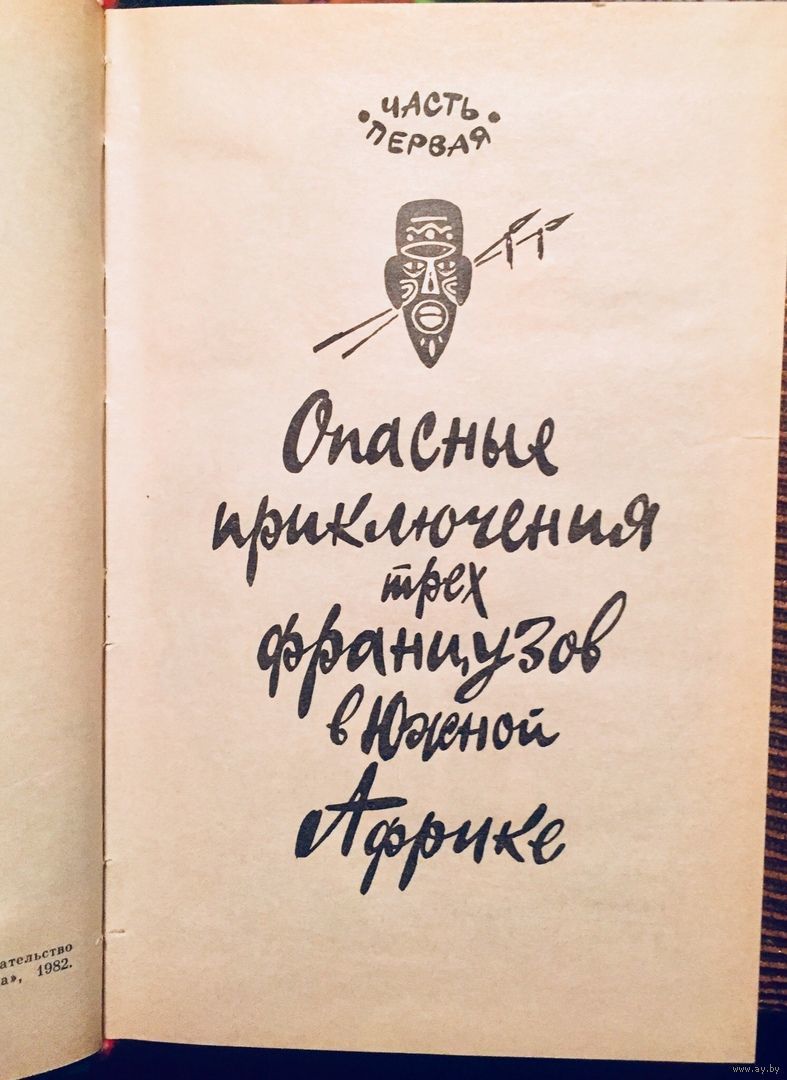 ЧАСТЬ
ПЕРВАЯ
Опасные
приключения
трех
французов
в Южной
Африке
ательство
а», 1982.
www.ay.by